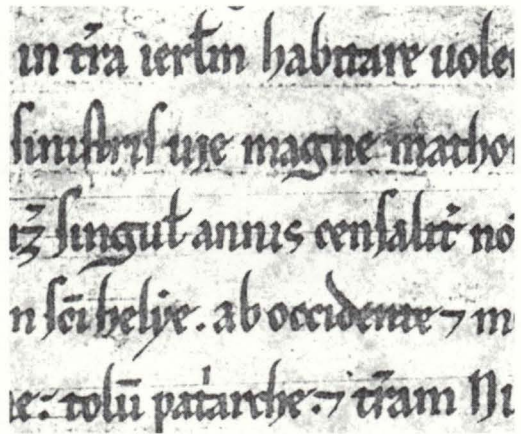 in tr̄a ierl̄m habitare uole
siniſtriſ uię magne macho
tꝫ ſingul̄ annis cenſalit̄ no
n ſc̄i helye. ab occidente ⁊ m
e: tolū pat̄arche:⁊ tr̄am Ni